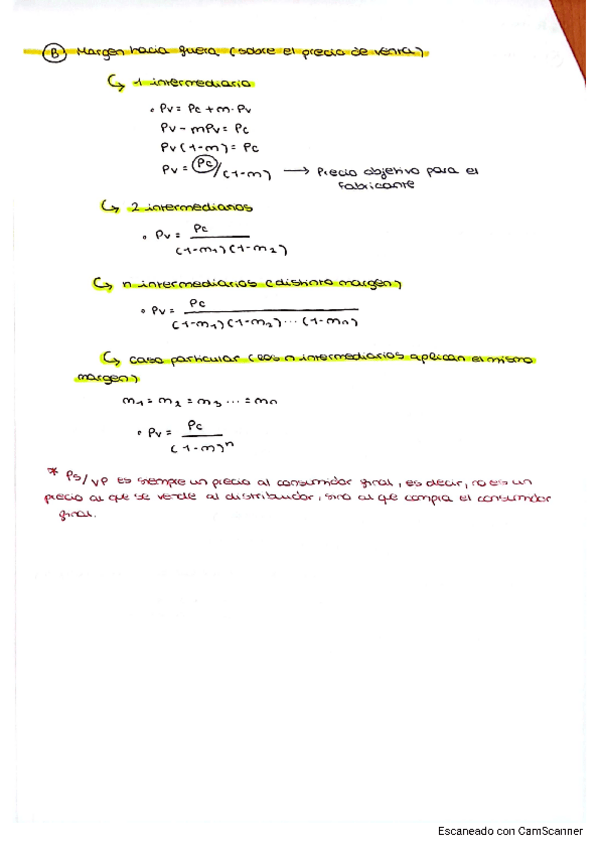 B Margen hacia fuera (sobre el precio de venta)
↳ 1 intermediario
• Pv = Pc + m · Pv
Pv - mPv = Pc
Pv (1-m) = Pc
Pv = Pc/(1-m) → Precio objetivo para el
fabricante
↳ 2 intermediarios
• Pv = Pc / (1-m1)(1-m2)
↳ n intermediarios (distinto margen)
• Pv = Pc / (1-m1)(1-m2)...(1-mn)
↳ caso particular (los n intermediarios aplican el mismo
margen)
m1 = m2 = m3 ... = mn
• Pv = Pc / (1-m)^n
* PS/VP es siempre un precio al consumidor final, es decir, no es un
precio al que se vende al distribuidor, sino al que compra el consumidor
final.
Escaneado con CamScanner